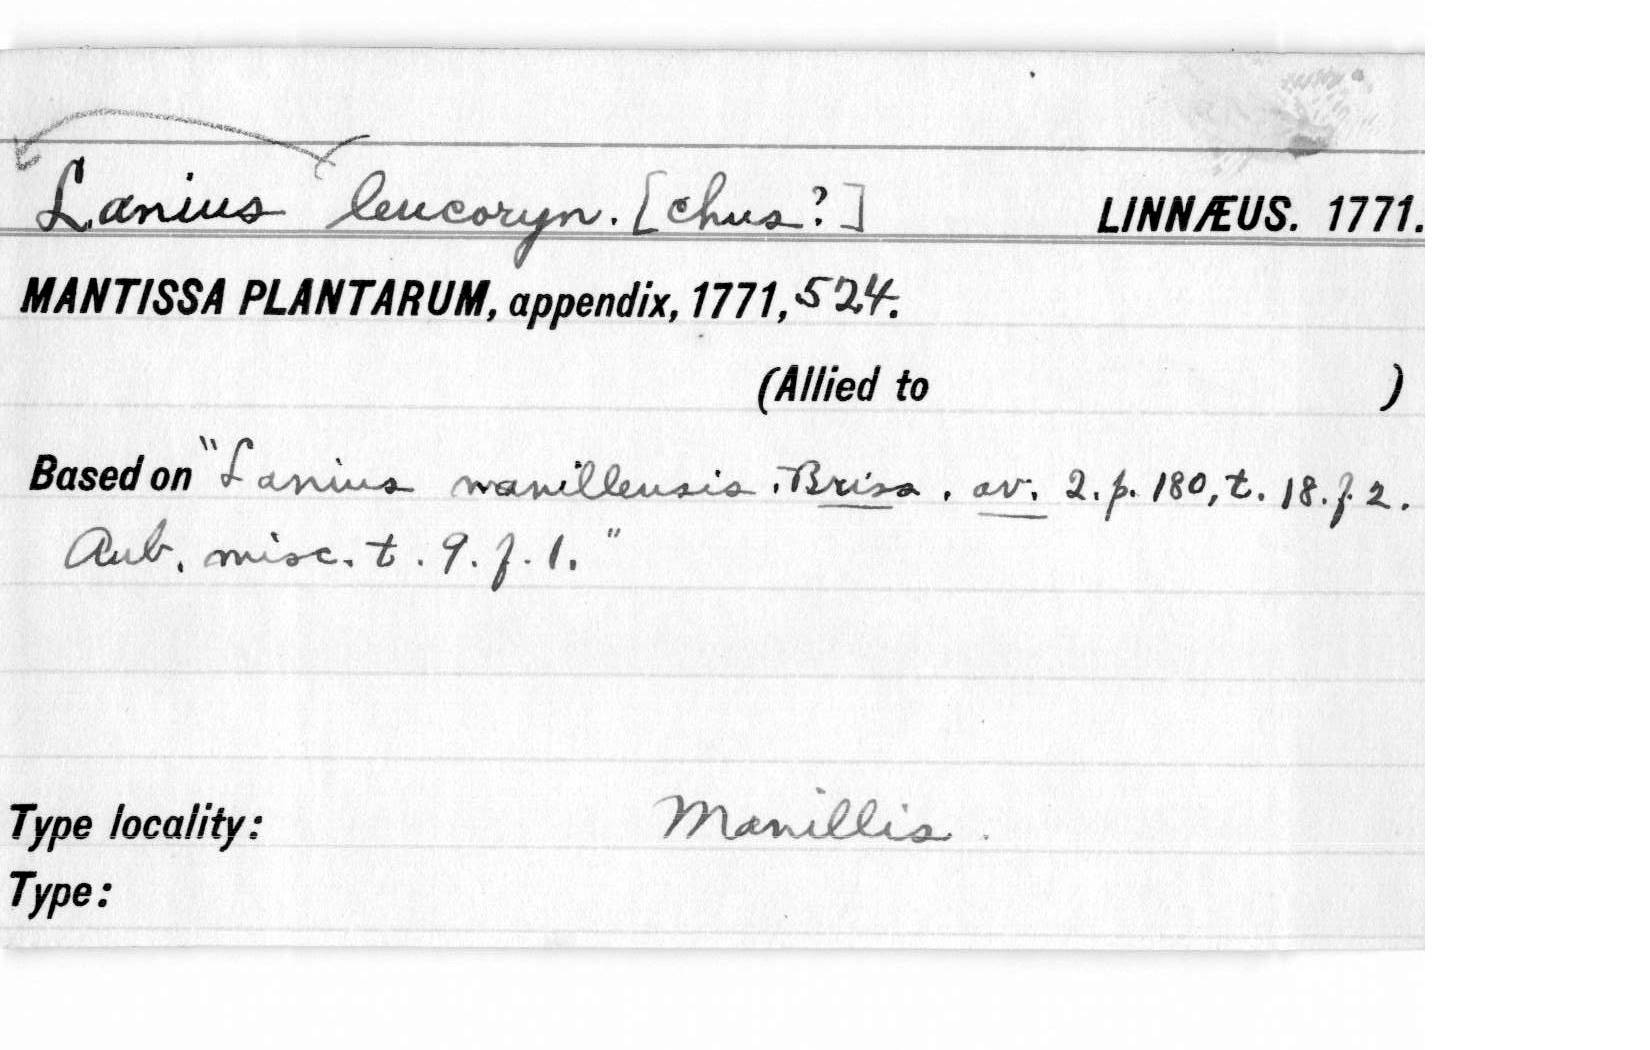 Lanius leucoryn. [chus?] LINNÆUS. 1771.
MANTISSA PLANTARUM, appendix, 1771, 524.
(Allied to )
Based on "Lanius manillensis. Briss. av. 2. p. 180, t. 18. f. 2.
Aub. misc. t. 9. f. 1."
Type locality: Manillis.
Type: